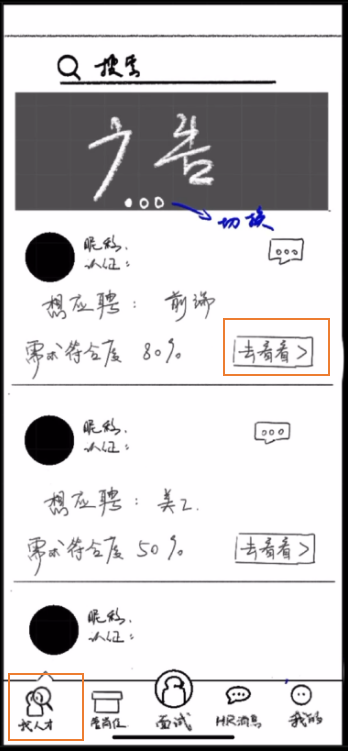 搜索
广告
切换
昵称:
认证:
想应聘: 前端
需求符合度 80%
去看看>
昵称:
认证:
想应聘: 美工
需求符合度 50%
去看看>
昵称:
认证:
找人才
面试
HR消息
我的